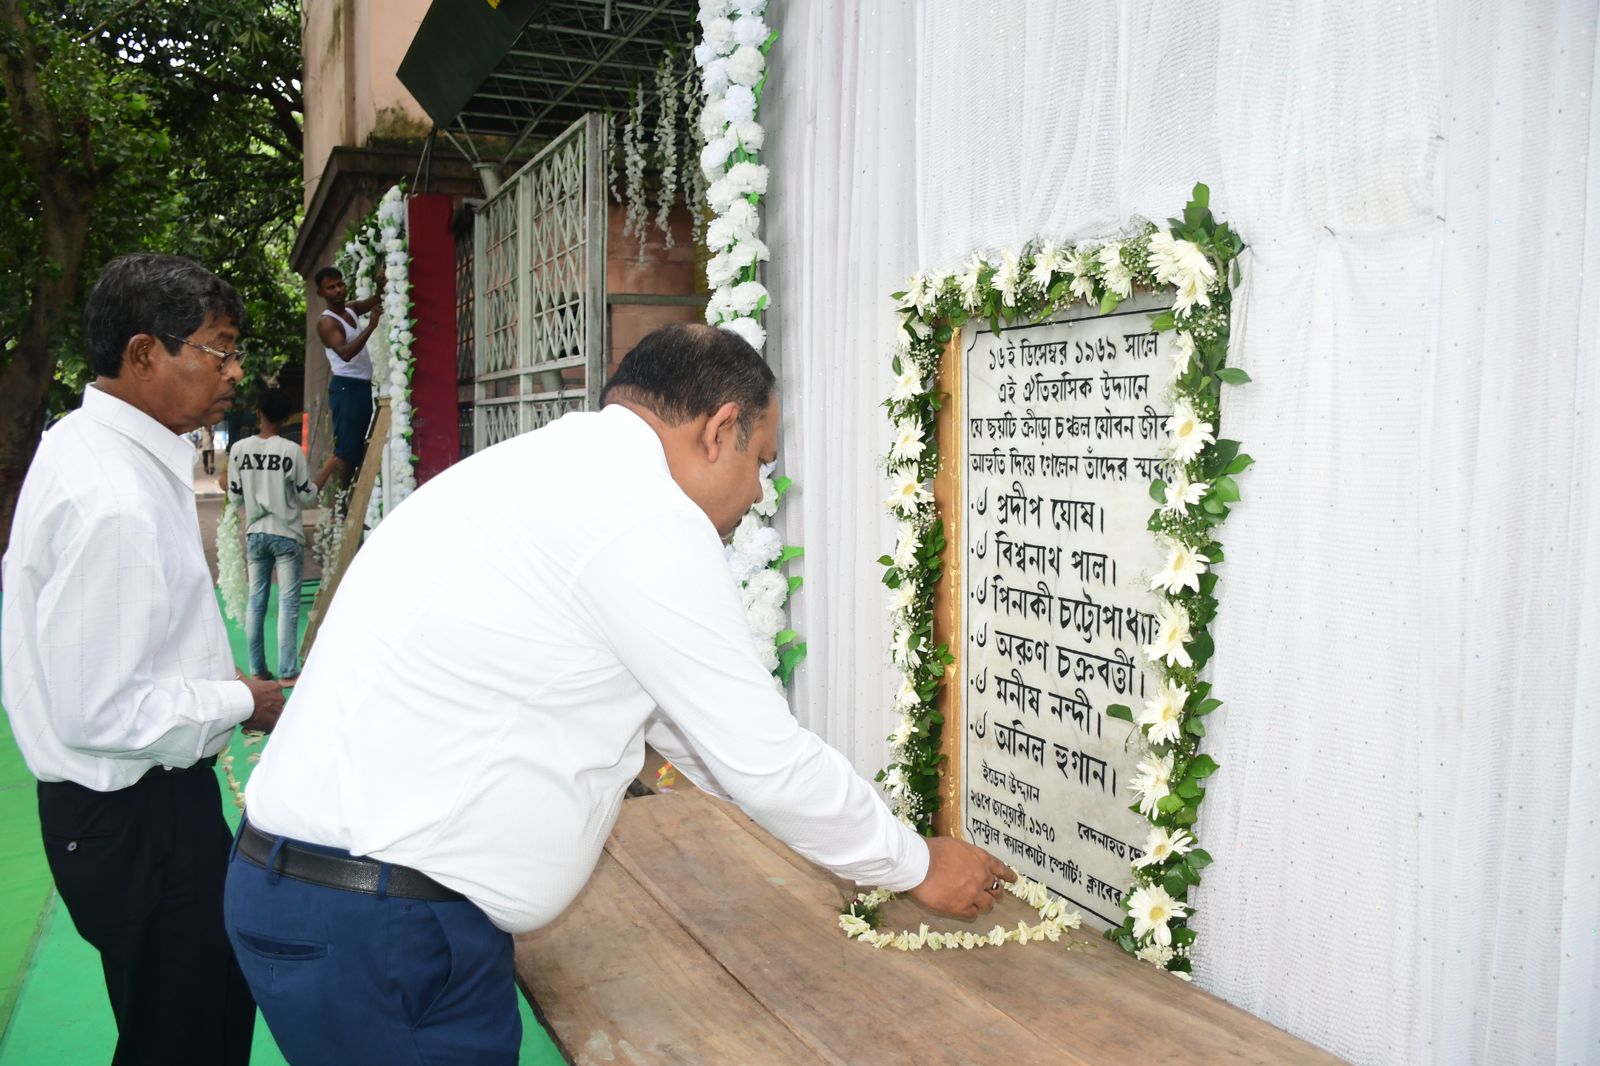 ১৬ই ডিসেম্বর ১৯৬৯ সালে
এই ঐতিহাসিক উদ্যানে
যে ছয়টি ক্রীড়া চঞ্চল যৌবন
আহুতি দিয়ে গেলেন তাঁদের
ঁ প্রদীপ ঘোষ।
ঁ বিশ্বনাথ পাল।
ঁ পিনাকী চট্টোপাধ্যায়
ঁ অরুণ চক্রবর্ত্তী।
ঁ মনীষ নন্দী।
ঁ অনিল হুগান।
ইডেন উদ্যান
২৬শে জানুয়ারী, ১৯৭০
বেদনাহত
সেন্ট্রাল ক্যালকাটা স্পোর্টিং ক্লাবের
AYBO